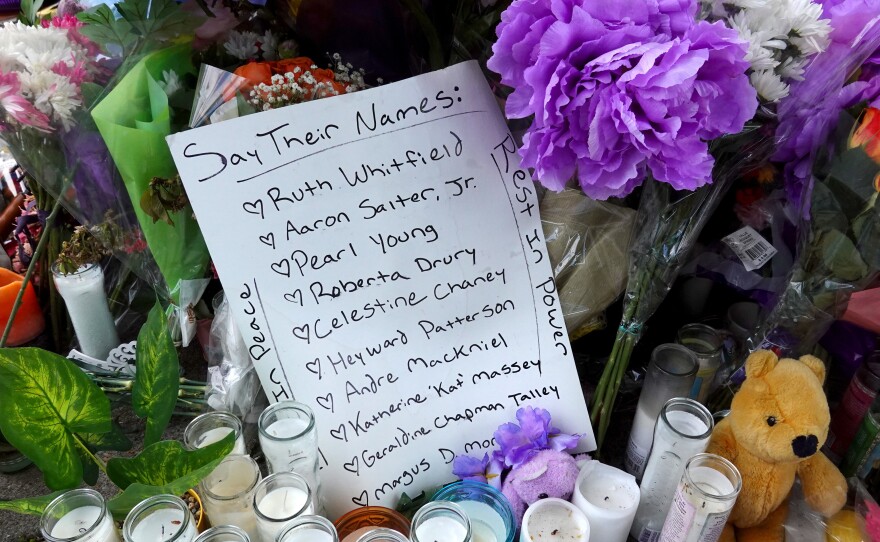 Say Their Names:
Ruth Whitfield
Aaron Salter, Jr.
Pearl Young
Roberta Drury
Celestine Chaney
Heyward Patterson
Andre Mackniel
Katherine 'Kat' Massey
Geraldine Chapman Talley
Margus D. Mor
In Peace
Rest In Power